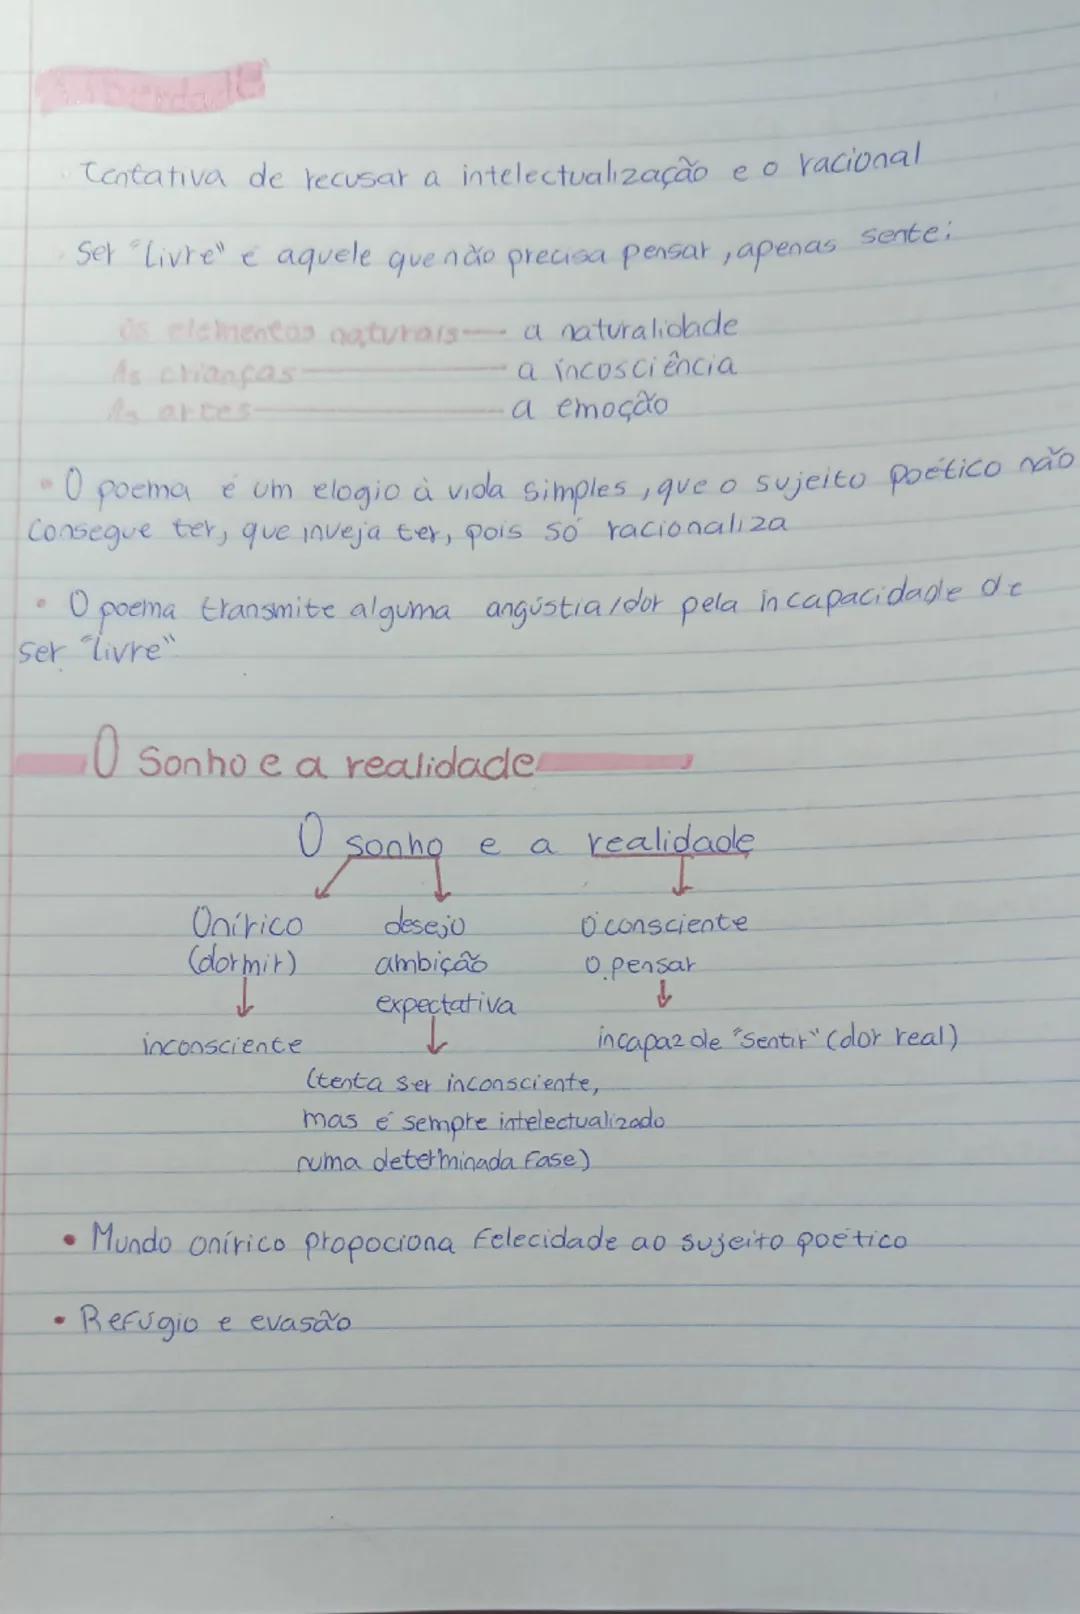 "Liberdade"
Tentativa de recusar a intelectualização e o racional
Ser "Livre" é aquele que não precisa pensar, apenas sente:
Os elementos naturais — a naturalidade
As crianças — a incosciência
As artes — a emoção
• O poema é um elogio à vida simples, que o sujeito poético não
consegue ter, que inveja ter, pois só racionaliza
• O poema transmite alguma angústia/dor pela incapacidade de
ser "livre"
O Sonho e a realidade
O sonho e a realidade
Onírico desejo o consciente
(dormir) ambição o pensar
expectativa
inconsciente incapaz de "sentir" (dor real)
(tenta ser inconsciente,
mas é sempre intelectualizado
numa determinada fase)
• Mundo onírico propociona felecidade ao sujeito poético
• Refúgio e evasão